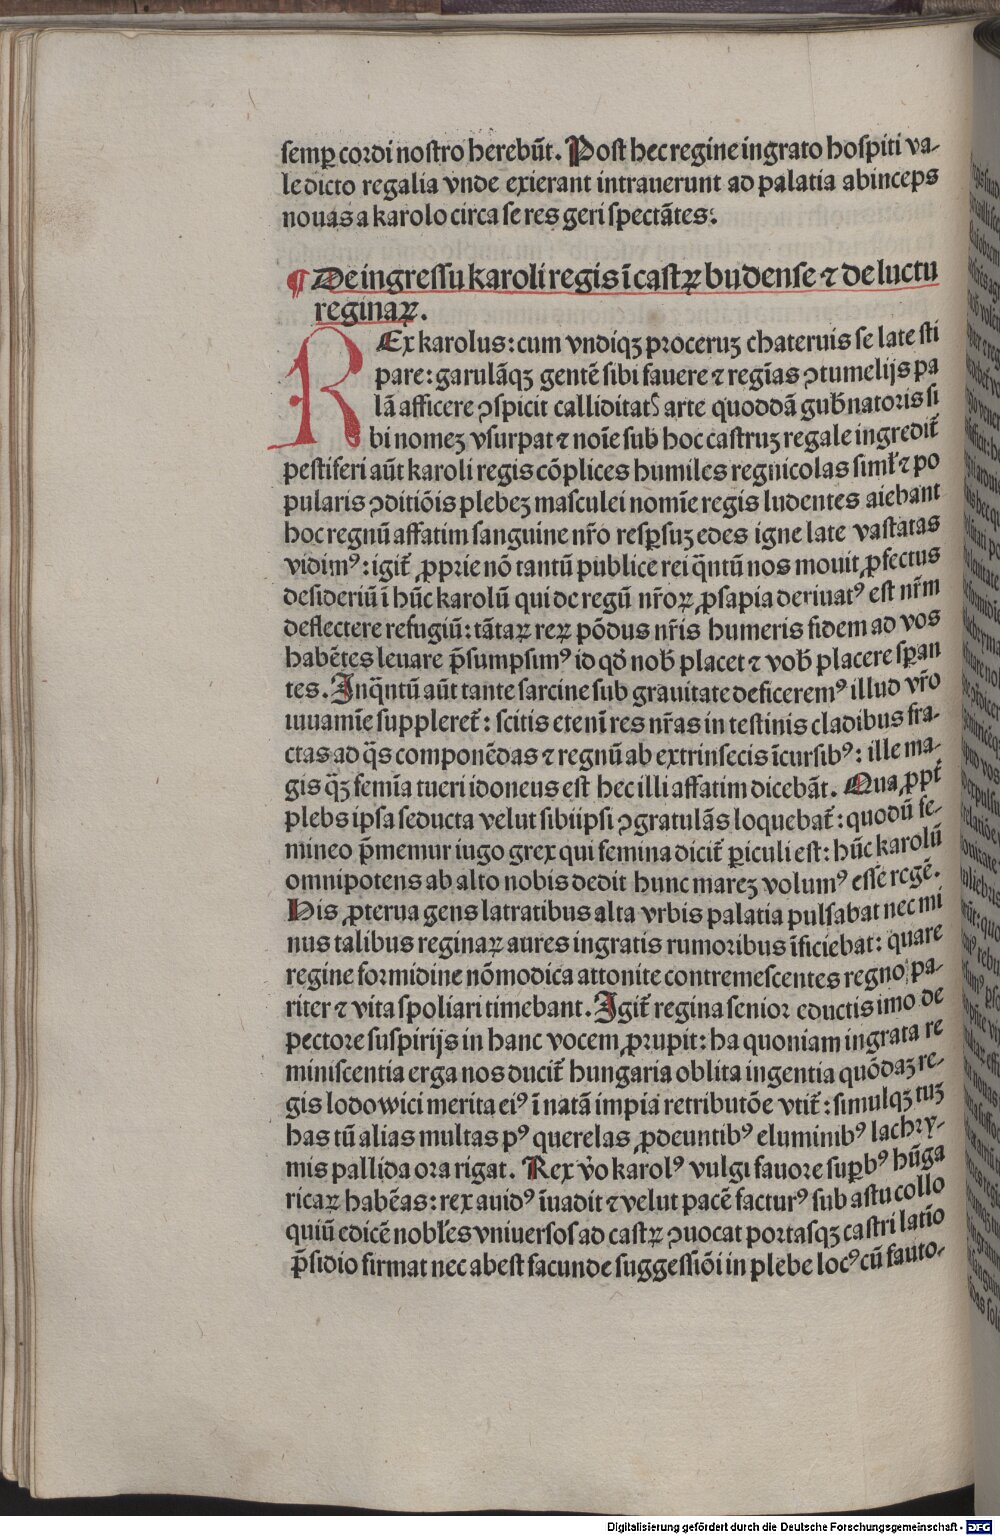 semꝑ cordi nostro herebūt. Post hec regine ingrato hospiti va-
ledicto regalia vnde exierant intrauerunt ad palatia abinceps
nouas a karolo circa se res geri spectātes:
¶ De ingressu karoli regis ī castꝝ budense ⁊ de luctu
reginaꝝ.
REx karolus: cum vndiqꝫ proceruꝫ chateruis se late sti
pare: garulāqꝫ gentē sibi fauere ⁊ regīas ꝯtumelijs pa
lā afficere ꝯspicit calliditatꝭ arte quoddā gub̄natoris si
bi nomeꝫ vsurpat ⁊ noīe sub hoc castruꝫ regale ingredit̄
pestiferi aūt karoli regis cōplices humiles regnicolas simł ⁊ po
pularis ꝯditiōis plebeꝫ masculei nomīe regis ludentes aiebant
hoc regnū affatim sanguine nr̄o resꝑsuꝫ edes igne late vastatas
vidimꝰ: igit̄ ꝓprie nō tantū publice rei q̄ntū nos mouit ꝓfectus
desideriū ī hūc karolū qui de regū nr̄oꝝ ꝓsapia deriuatꝰ est nr̄m
deflectere refugiū: tātaꝝ reꝝ pōdus nr̄is humeris fidem ad vos
habētes leuare p̄sumpsimꝰ id qd̄ nob̄ placet ⁊ vob̄ placere sꝑan
tes. Inq̄ntū aūt tante sarcine sub grauitate deficeremꝰ illud vr̄o
iuuamīe suppleret̄: scitis etenī res nr̄as in testinis cladibus fra-
ctas ad q̄s componēdas ⁊ regnū ab extrinsecis īcursibꝰ: ille ma-
gis q̄ꝫ femīa tueri idoneus est hec illi affatim dicebāt. Qua ꝓpt̄
plebs ipsa seducta velut sibiipsi ꝯgratulās loquebat̄: quodū fe-
mineo p̄memur iugo grex qui femina dicit̄ ꝑiculi est: hūc karolū
omnipotens ab alto nobis dedit hunc mareꝫ volumꝰ esse regē.
His ꝓterua gens latratibus alta vrbis palatia pulsabat nec mi
nus talibus reginaꝝ aures ingratis rumoribus īficiebat: quare
regine formidine nōmodica attonite contremescentes regno pa-
riter ⁊ vita spoliari timebant. Igit̄ regina senior eductis imo de
pectore suspirijs in hanc vocem ꝓrupit: ha quoniam ingrata re
miniscentia erga nos ducit̄ hungaria oblita ingentia quōdaꝫ re-
gis lodowici merita eiꝰ ī natā impia retributōe vtit̄: simulqꝫ tuꝫ
has tū alias multas pꝰ querelas ꝓdeuntibꝰ eluminibꝰ lachry-
mis pallida ora rigat. Rex v̄o karolꝰ vulgi fauore suꝑbꝰ hūga
ricaꝝ habēas: rex auidꝰ īuadit ⁊ velut pacē facturꝰ sub astu collo
quiū edicē nobłes vniuersos ad castꝝ ꝯuocat portasqꝫ castri latīo
p̄sidio firmat nec abest facunde suggessiōi in plebe locꝰ cū fauto-
Digitalisierung gefördert durch die Deutsche Forschungsgemeinschaft - DFG